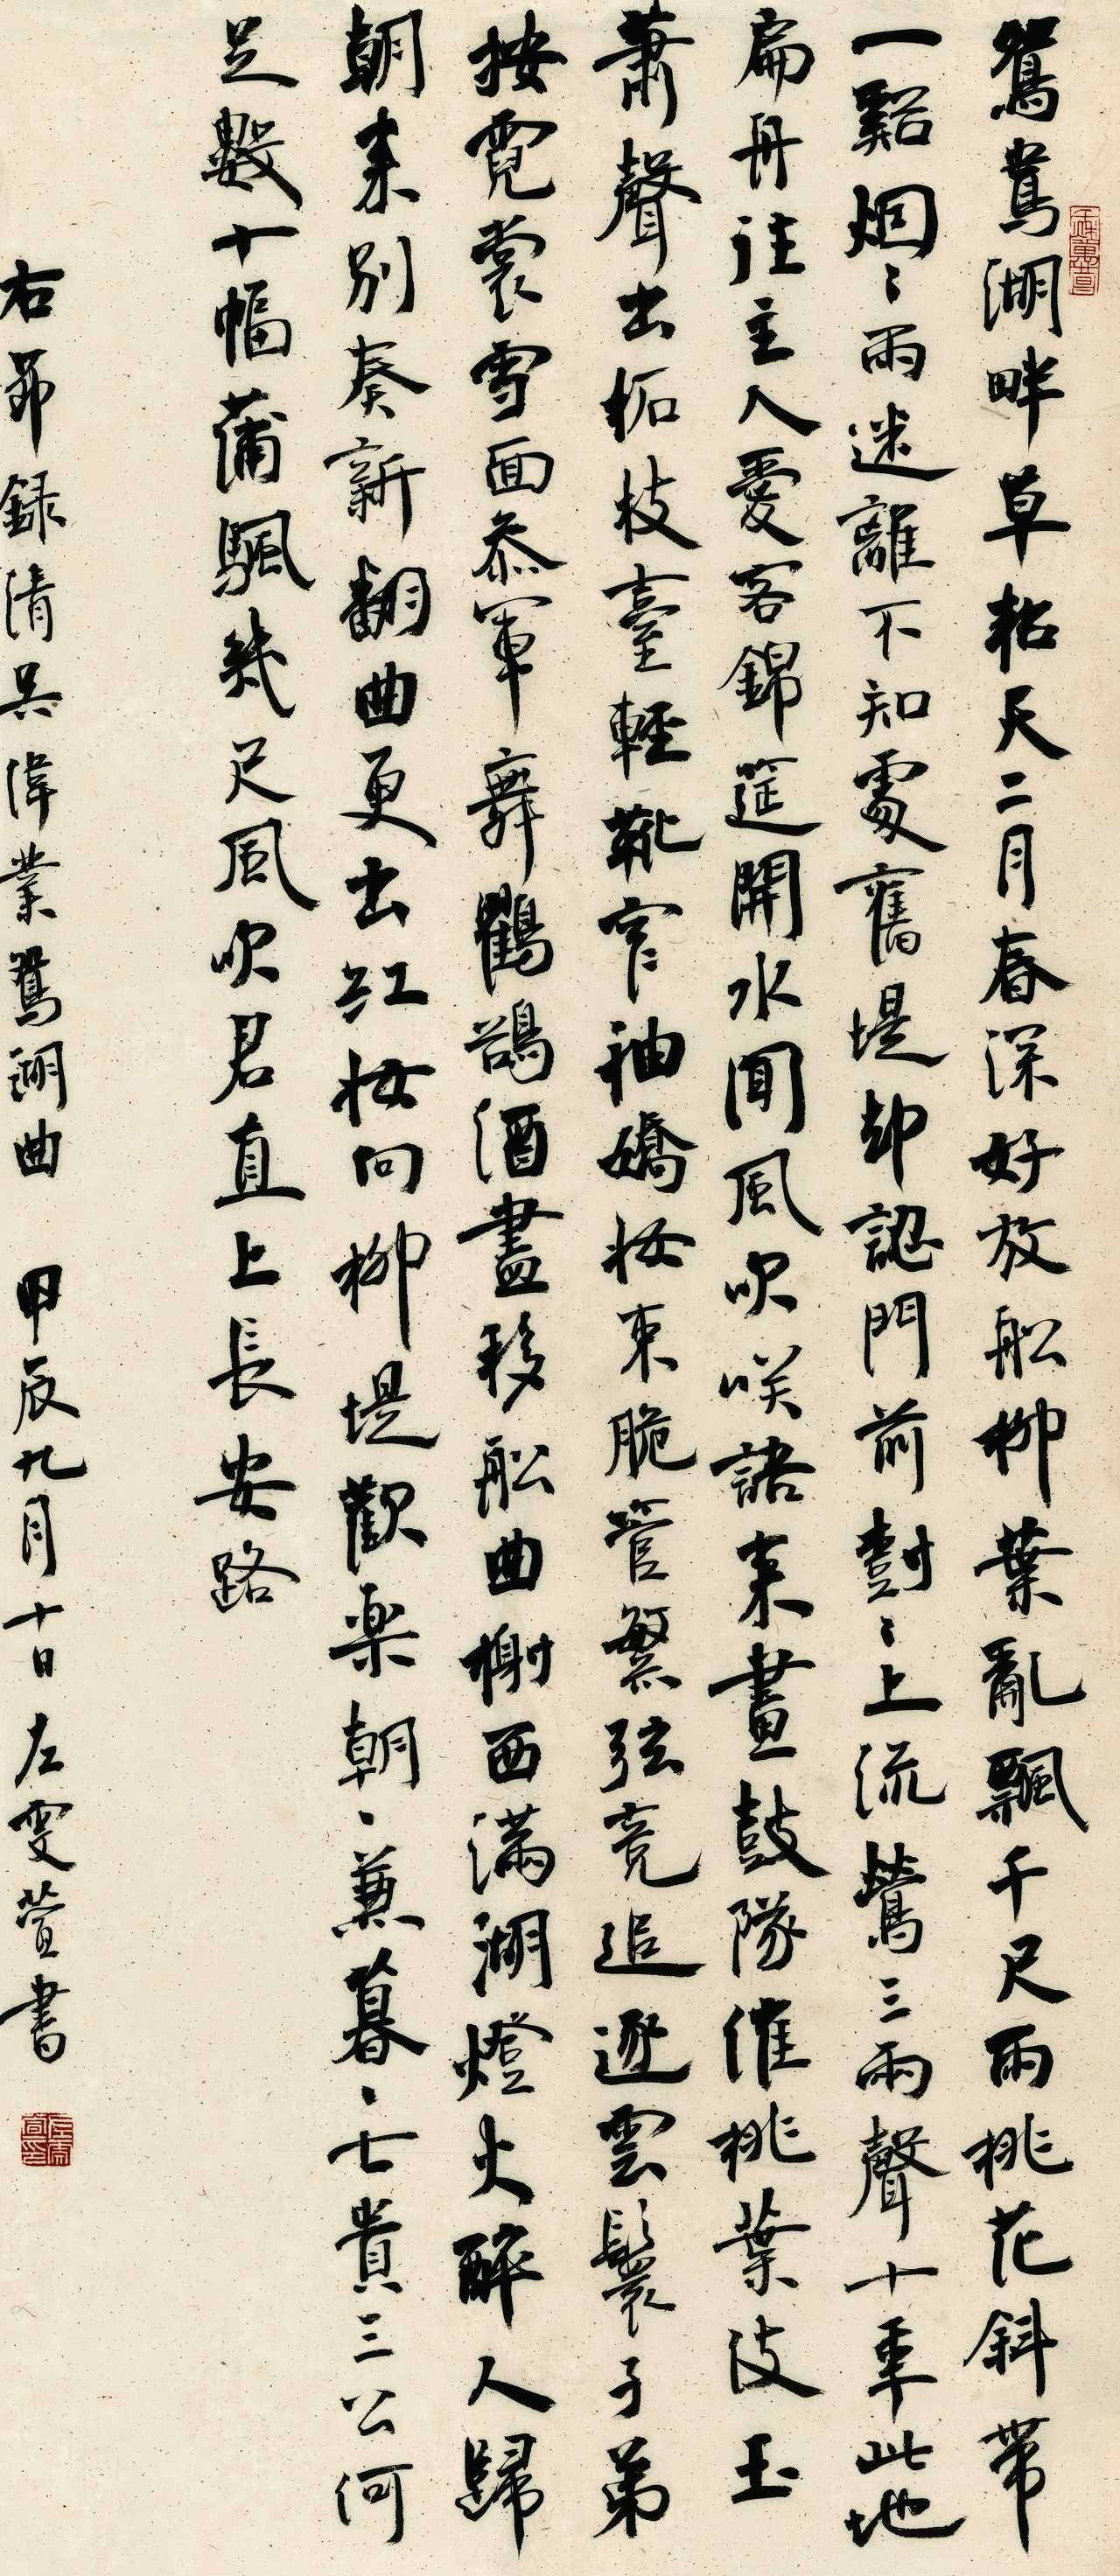 鴛鴦湖畔草粘天二月春深好放船柳葉亂飄千尺雨桃花斜帶
一谿烟〻雨迷離不知處舊堤却認門前對〻上流鶯三兩聲十年此地
扁舟住主人愛客錦筵開水閒風吹咲語來畫鼓隊催桃葉伎玉
蕭聲出柘枝臺輕靴窄袖嬌妝束脆管繁弦競追逐雲鬟子弟
按霓裳雪面參軍舞鸛鵒酒盡移船曲榭西滿湖燈火醉人歸
朝来别奏新翻曲更出紅妝向柳堤歡樂朝〻兼暮〻七貴三公何
足數十幅蒲颿幾尺風吹君直上長安路
右節録清吳偉業鴛湖曲 甲辰九月十日左雯萱書